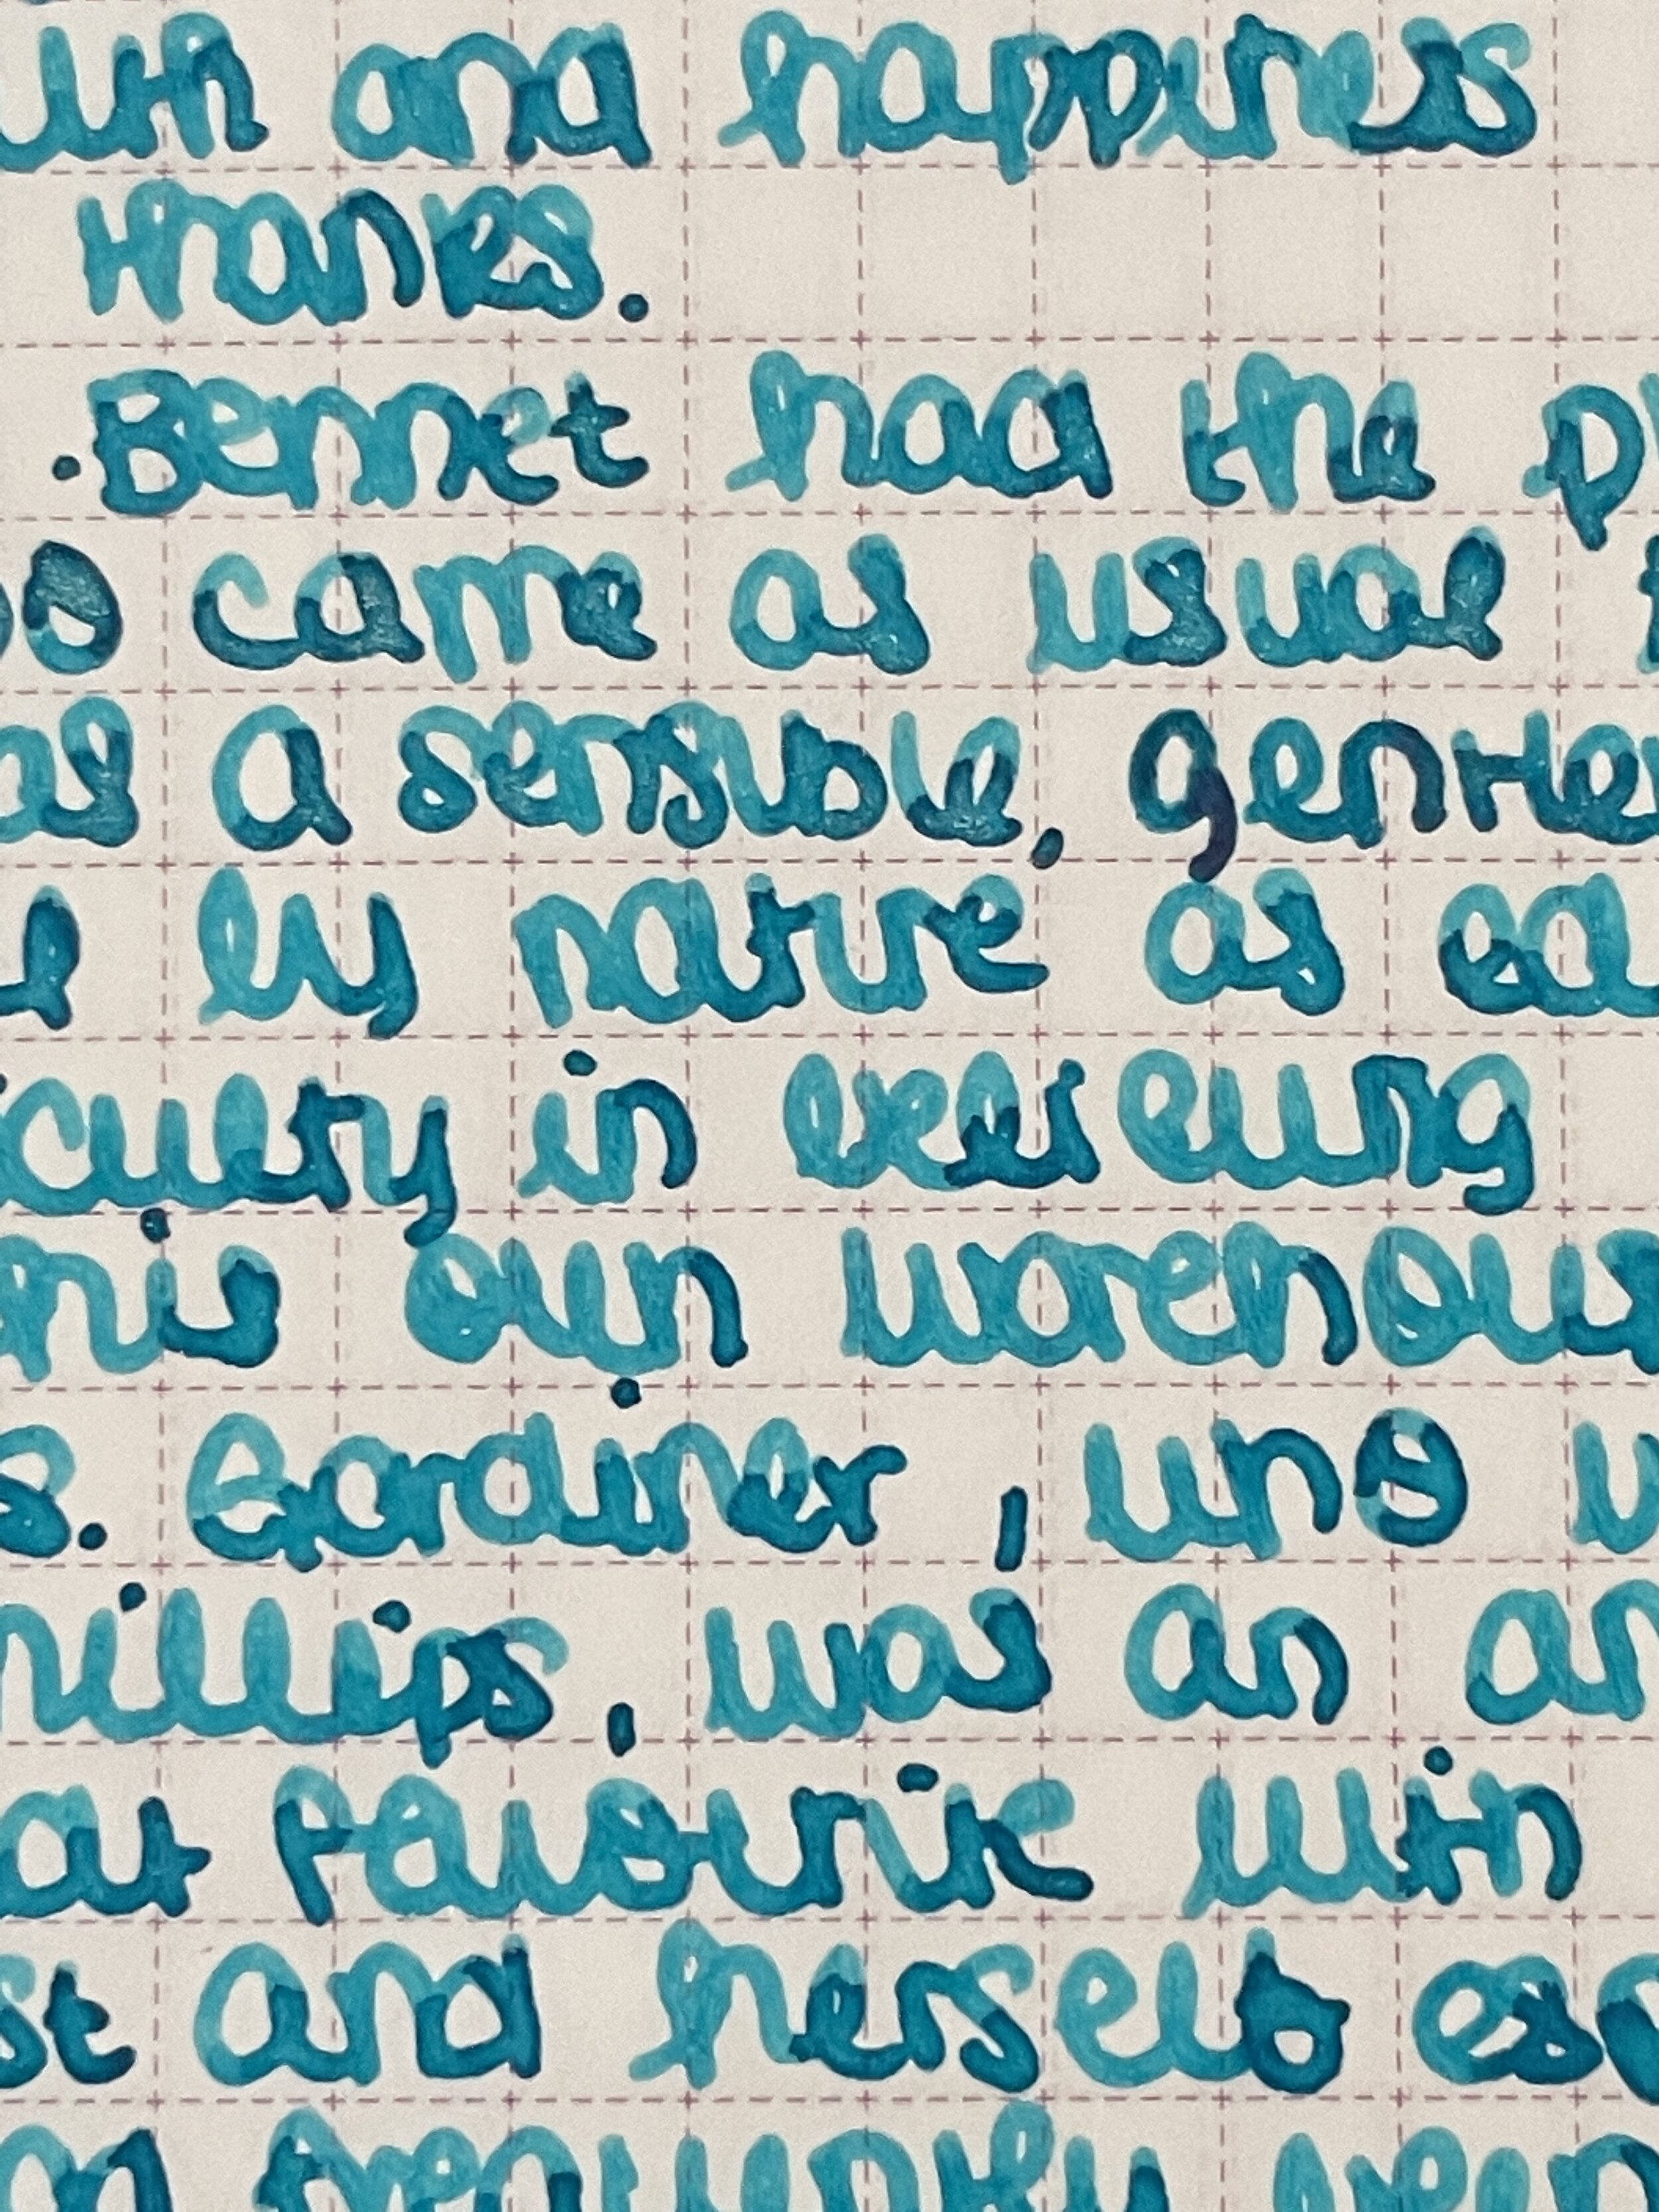 and happiness
thanks.
. Bennet had the
came as usual
as a sensible, gentle
by nature as
iculty in believing
his own warehous
s. Gardiner, who
hillips, was an
at favourite with
st and herself es
frequently been